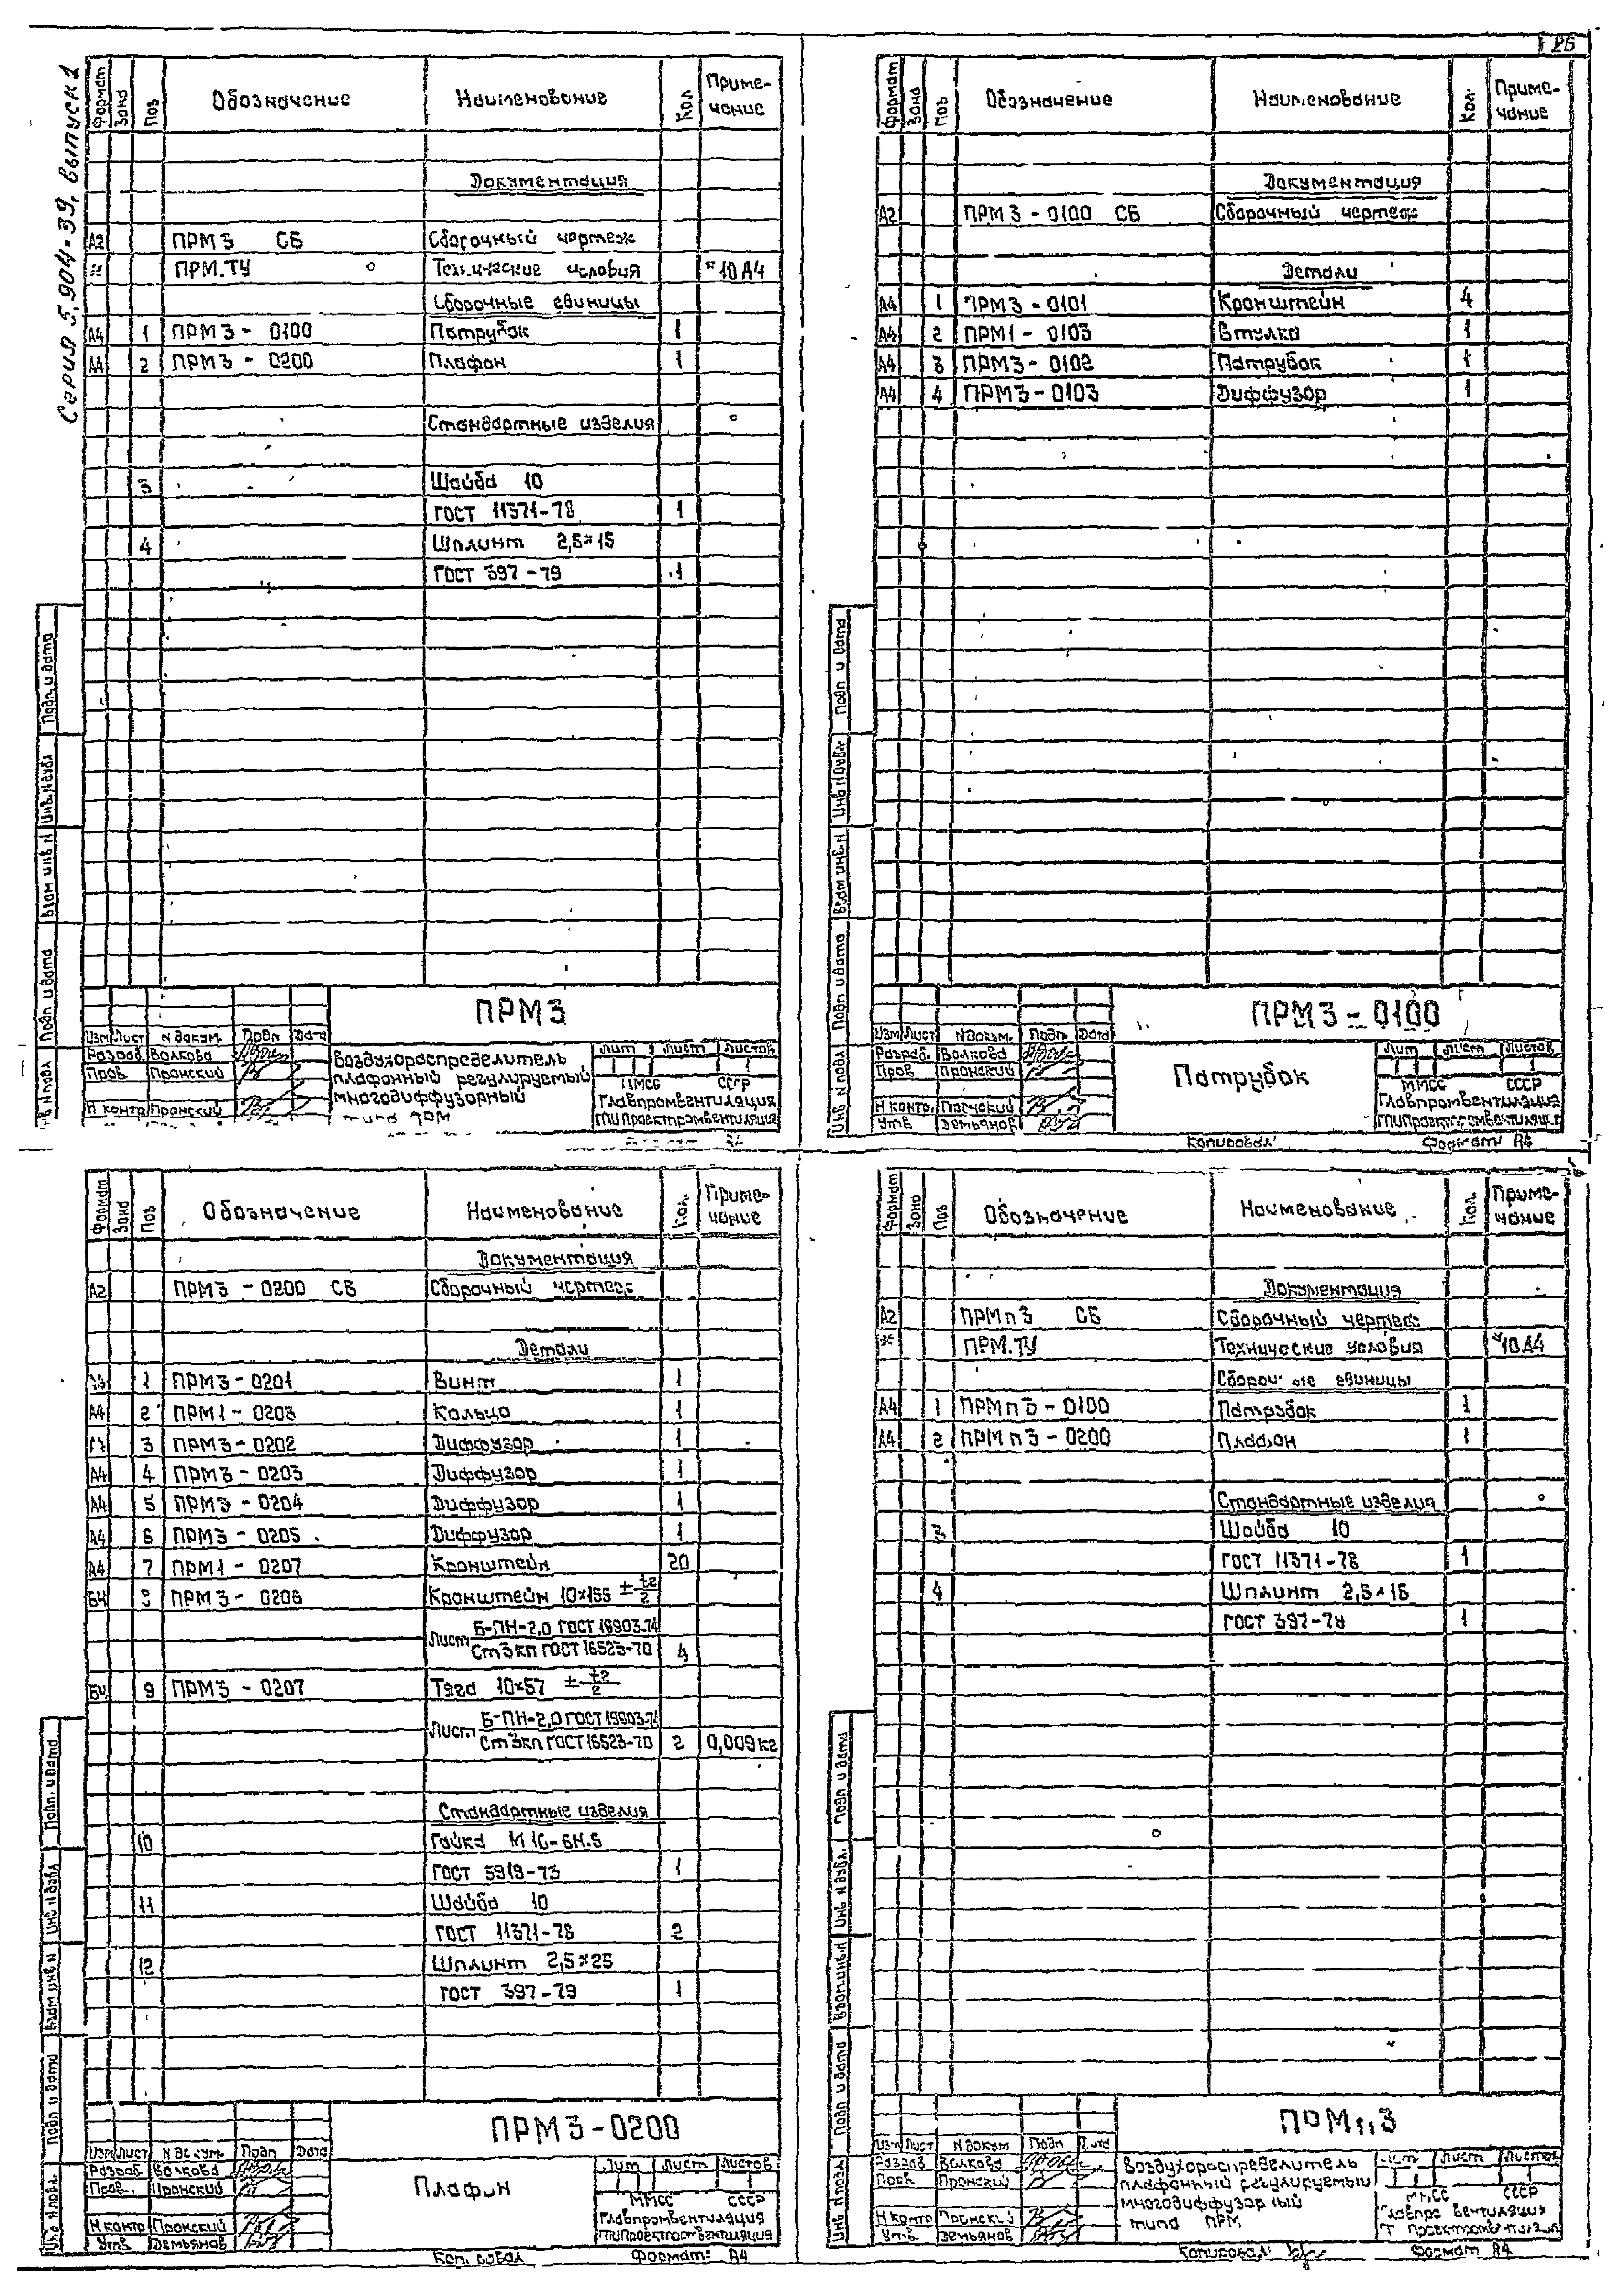 26
Серия 5.904-39, выпуск 1
Формат Зона Поз Обозначение Наименование Кол Приме-
чание
Документация
А2 ПРМ3 СБ Сборочный чертеж
* ПРМ.ТУ Технические условия *10А4
Сборочные единицы
А4 1 ПРМ3-0100 Патрубок 1
А4 2 ПРМ3-0200 Плафон 1
Стандартные изделия
3 Шайба 10
ГОСТ 11371-78 1
4 Шплинт 2,5×15
ГОСТ 397-79 1
Подп. и дата
Инв. N дубл
Взам инв N
Подп и дата
Инв N подл
ПРМ3
Изм Лист N докум. Подп Дата
Разраб. Волкова
Пров Пронский
Н контр Пронский
Воздухораспределитель
плафонный регулируемый
многодиффузорный
типа ПРМ
Лит Лист Листов
1
ММСС СССР
Главпромвентиляция
ГПИПроектпромвентиляция
Формат Зона Поз Обозначение Наименование Кол. Приме-
чание
Документация
А2 ПРМ3-0100 СБ Сборочный чертеж
Детали
А4 1 ПРМ3-0101 Кронштейн 4
А4 2 ПРМ1-0103 Втулка 1
А4 3 ПРМ3-0102 Патрубок 1
А4 4 ПРМ3-0103 Диффузор 1
Подп и дата
Инв N дубл
Взам инв. N
Подп и дата
Инв N подл
ПРМ3-0100
Изм Лист N докум. Подп Дата
Разраб. Волкова
Пров Пронский
Н контр. Пронский
Утв Демьянов
Патрубок
Лит Лист Листов
1
ММСС СССР
Главпромвентиляция
ГПИПроектпромвентиляция
Копировал Формат А4
Формат Зона Поз Обозначение Наименование Кол. Приме-
чание
Документация
А2 ПРМ3-0200 СБ Сборочный чертеж
Детали
А4 1 ПРМ3-0201 Винт 1
А4 2 ПРМ1-0203 Кольцо 1
3 ПРМ3-0202 Диффузор 1
А4 4 ПРМ3-0203 Диффузор 1
А4 5 ПРМ3-0204 Диффузор 1
А4 6 ПРМ3-0205 Диффузор 1
А4 7 ПРМ1-0207 Кронштейн 20
БЧ 8 ПРМ3-0206 Кронштейн 10×155 ± t2/2
Лист Б-ПН-2,0 ГОСТ 19903-74
Ст3кп ГОСТ 16523-70 4
БЧ 9 ПРМ3-0207 Тяга 10×57 ± t2/2
Лист Б-ПН-2,0 ГОСТ 19903-74
Ст3кп ГОСТ 16523-70 2 0,009кг
Стандартные изделия
10 Гайка М10-6Н.5
ГОСТ 5919-73 1
11 Шайба 10
ГОСТ 11371-78 2
12 Шплинт 2,5×25
ГОСТ 397-79 1
Подп. и дата
Инв N дубл
Взам инв N
Подп и дата
Инв N подл.
ПРМ3-0200
Изм Лист N докум. Подп Дата
Разраб Волкова
Пров. Пронский
Н контр Пронский
Утв Демьянов
Плафон
Лит Лист Листов
1
ММСС СССР
Главпромвентиляция
ГПИПроектпромвентиляция
Копировал Формат А4
Формат Зона Поз Обозначение Наименование Кол. Приме-
чание
Документация
А2 ПРМп3 СБ Сборочный чертеж
* ПРМ.ТУ Технические условия *10А4
Сборочные единицы
А4 1 ПРМп3-0100 Патрубок 1
А4 2 ПРМп3-0200 Плафон 1
Стандартные изделия
3 Шайба 10
ГОСТ 11371-78 1
4 Шплинт 2,5×15
ГОСТ 397-79 1
Подп и дата
Инв N дубл.
Взам инв N
Подп и дата
Инв N подл
ПРМп3
Изм Лист N докум Подп Дата
Разраб Волкова
Пров Пронский
Н контр Пронский
Утв Демьянов
Воздухораспределитель
плафонный регулируемый
многодиффузорный
типа ПРМ
Лит Лист Листов
1
ММСС СССР
Главпромвентиляция
ГПИПроектпромвентиляция
Копировал Формат А4